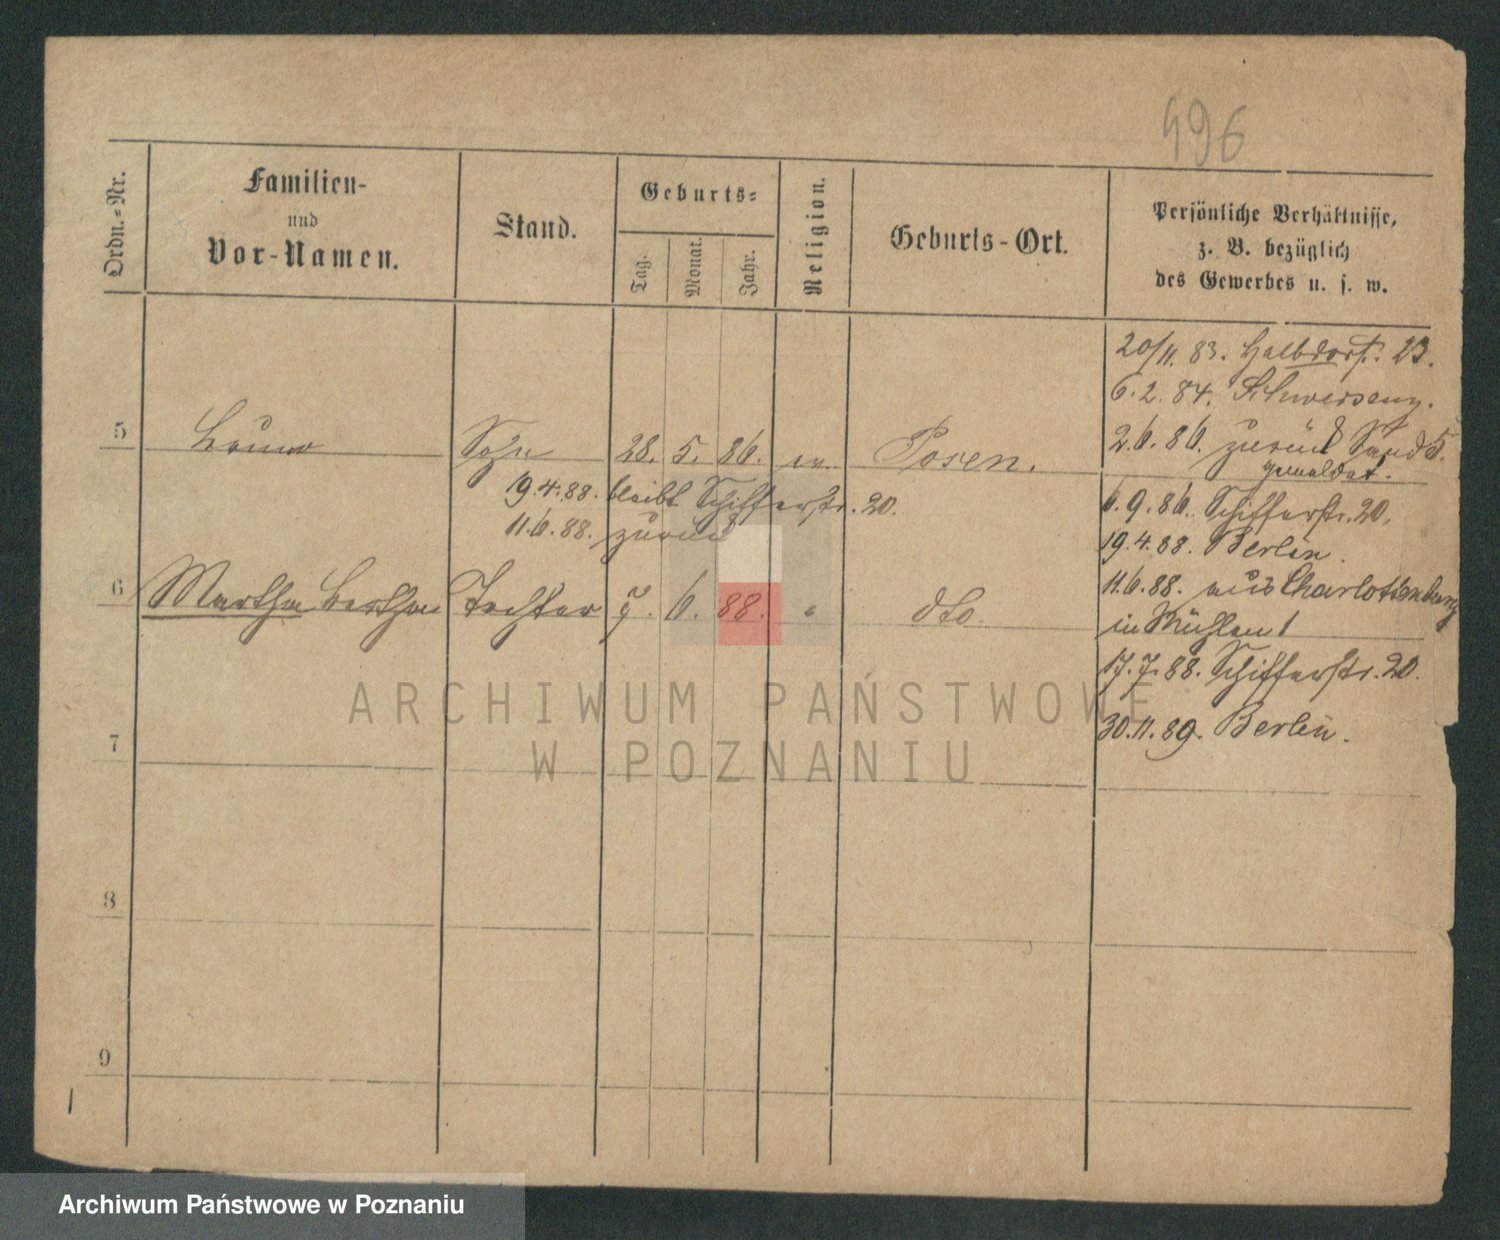 496
Ordn.-Nr.
Familien-
und
Vor-Namen.
Stand.
Geburts-
Tag.
Monat.
Jahr.
Religion.
Geburts-Ort.
Persönliche Verhältnisse,
z. B. bezüglich
des Gewerbes u. s. w.
20/11. 83. Halbdorfst. 23.
6. 2. 84. Schwersenz.
5 Bruno Sohn 28. 5. 86. ev. Posen. 2. 6. 86. zurück Sand 5.
gemeldet.
19. 4. 88. bleibt Schifferstr. 20. 6. 9. 86. Schifferstr. 20.
11. 6. 88. zurück 19. 4. 88. Berlin.
6 Martha Bertha Tochter 7. 6. 88. " dto. 11. 6. 88. aus Charlottenburg
in Mühlen 1
17. 7. 88. Schifferstr. 20.
7 30. 11. 89. Berlin.
8
9
ARCHIWUM PAŃSTWOWE
W POZNANIU
Archiwum Państwowe w Poznaniu